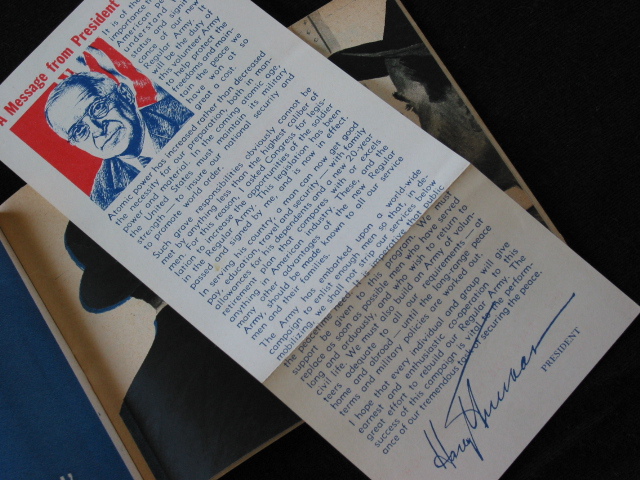 A Message from President
It is of the
importance th
American pe
understand
status of our
cance and signi
Regular Army. It
will be the duty of
this volunteer Army
to help protect the
freedoms and main-
tain the peace we
have won at so
great a cost.
Atomic power has increased rather than decreased
the necessity for our preparation both in man-
power and material. In the coming atomic age,
the United States must maintain its military
strength — to insure our national security and
to promote world order.
Such grave responsibilities obviously cannot be
met by anything less than the highest caliber of
men. For this reason, I asked Congress for legis-
lation to increase the opportunities of the soldier
in the Regular Army. This legislation has been
passed and signed by me, and is now in effect.
In serving his country, a man can now get good
pay, education, travel and security — with family
allowances for dependents and a new 20-year
retirement plan that compares with or excels
many in American industry. These and the
many other advantages of the new Regular
Army, should be made known to all our service
men and their families.
The Army has embarked upon a world-wide
campaign to enlist enough men so that, in de-
mobilizing, we shall not strip our services below
the peace
support be given to this program. We must
replace as soon as possible men who have served
long and arduously, and who wish to return to
civil life. We must also build an Army of volun-
teers adequate for all our requirements — at
home and abroad — until the long-range peace
terms and military policies are worked out.
I hope that every individual and group will give
earnest and enthusiastic co-operation to this
great effort to rebuild our Regular Army. The
success of this campaign is vital to the perform-
ance of our tremendous task of securing the peace.
Harry Truman
PRESIDENT